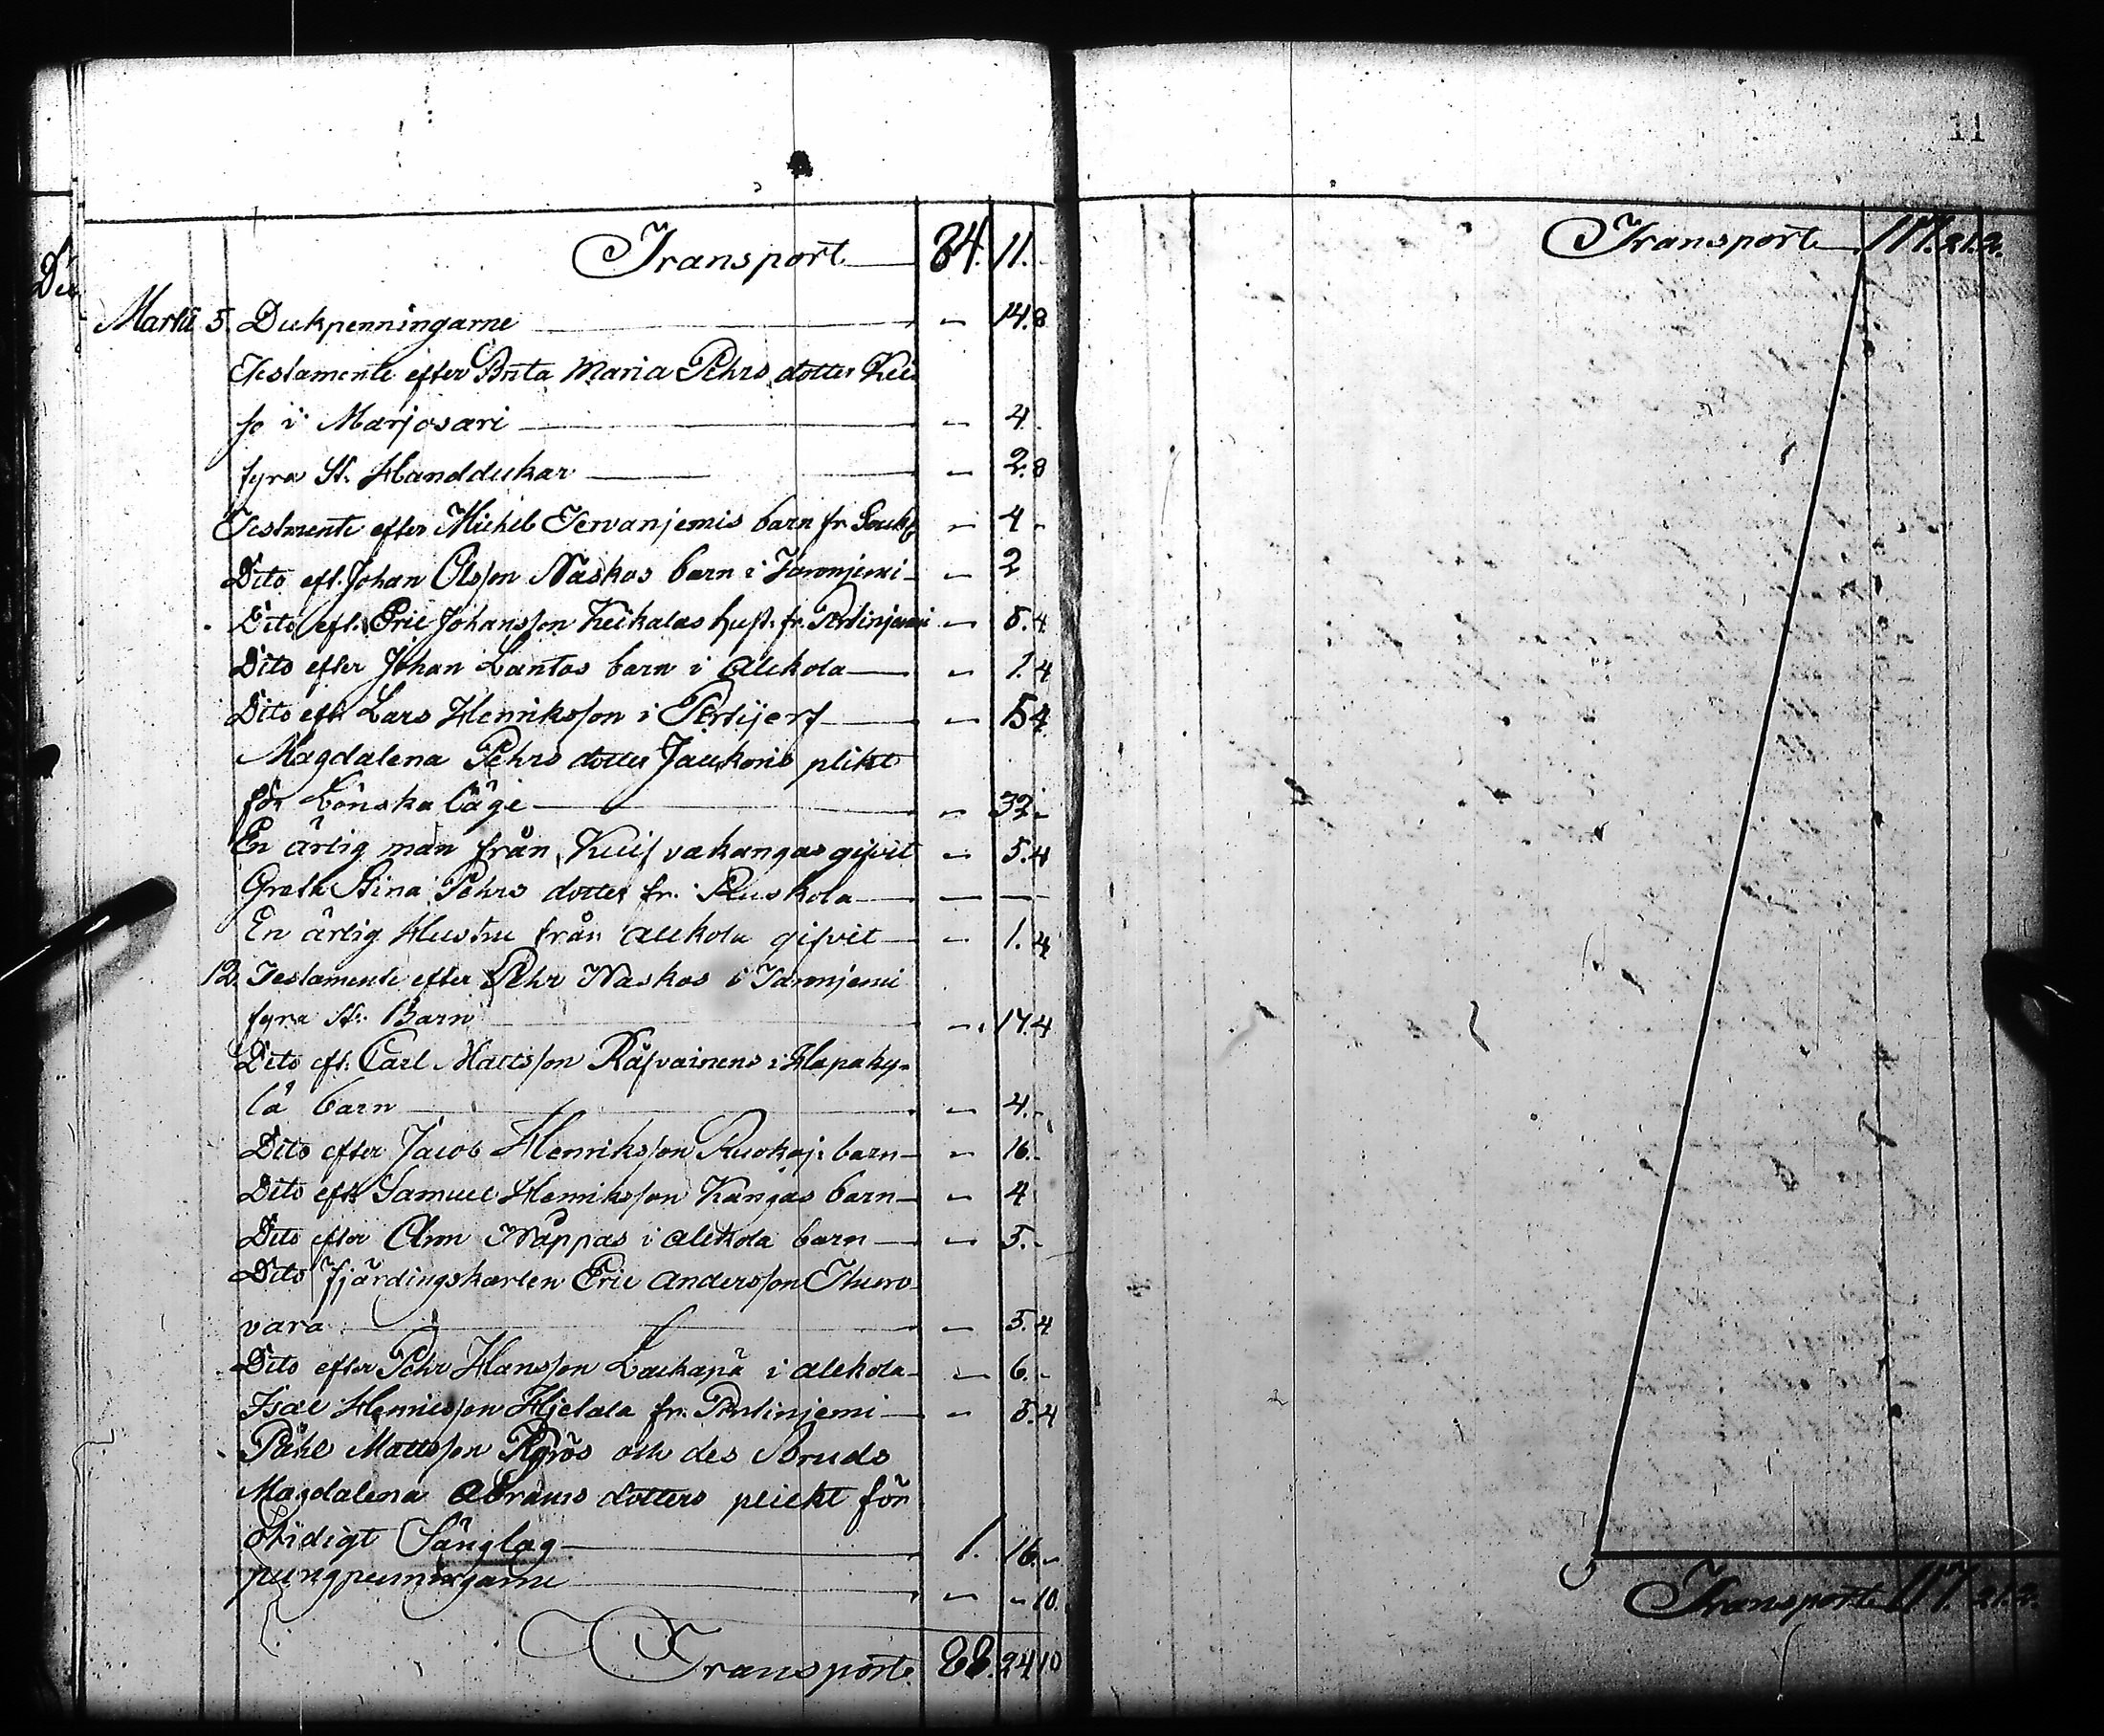 11
Transport 84. 11.
Martii 5. Dukpenningarne - 14. 8
Testamente efter Brita Maria Pehrs dotter Kei
so i Marjosari - 4.
fyra St. Handdukar - 2. 8
Testmente efter Michel Tervaniemis barn fr. - 4 -
Dito eft. Johan Olsson Naskos barn i - 2
Dito eft. Eric Johansson Keikalas hust. fr. Portinjemi - 5. 4
Dito efter Johan Lantos barn i Alekola - 1. 4
Dito eft. Lars Henriksson i - 5 4
Magdalena Pehrs dotter Jauskoris plikt
för Lönska läge - 32. -
En ärlig man från Kuifvakangas gifvit - 5. 4
Greta Stina Pehrs dotter fr. Ruskola - -
En ärlig Hustru från Alekola gifvit - 1. 4
12. Testamente efter Pehr Naskos i
fyra St. Barn - 17. 4
Dito eft. Carl Mattsson Räfvainens i Hapaky-
lä barn - 4. -
Dito efter Jacob Henriksson Ruokoj: barn - 16. -
Dito eft. Samuel Henriksson Kangas barn - 4
Dito efter Nappas i Alekola barn - 5. -
Dito fjärdingskarlen Eric Andersson
vara - 5. 4
Dito efter Pehr Hansson Laukapä i Alekola - 6. -
Isac Henricsson Hjelala fr. Portinjemi - 5. 4
Påhl Mattsson och des Bruds
Magdalena Abrams dotters plickt för
otidigt Sänglag 1. 16. -
pungpenningarne - - 10.
Transport. 88. 24 10
Transport 117. 21. 2.
Transport 117. 21. 2.